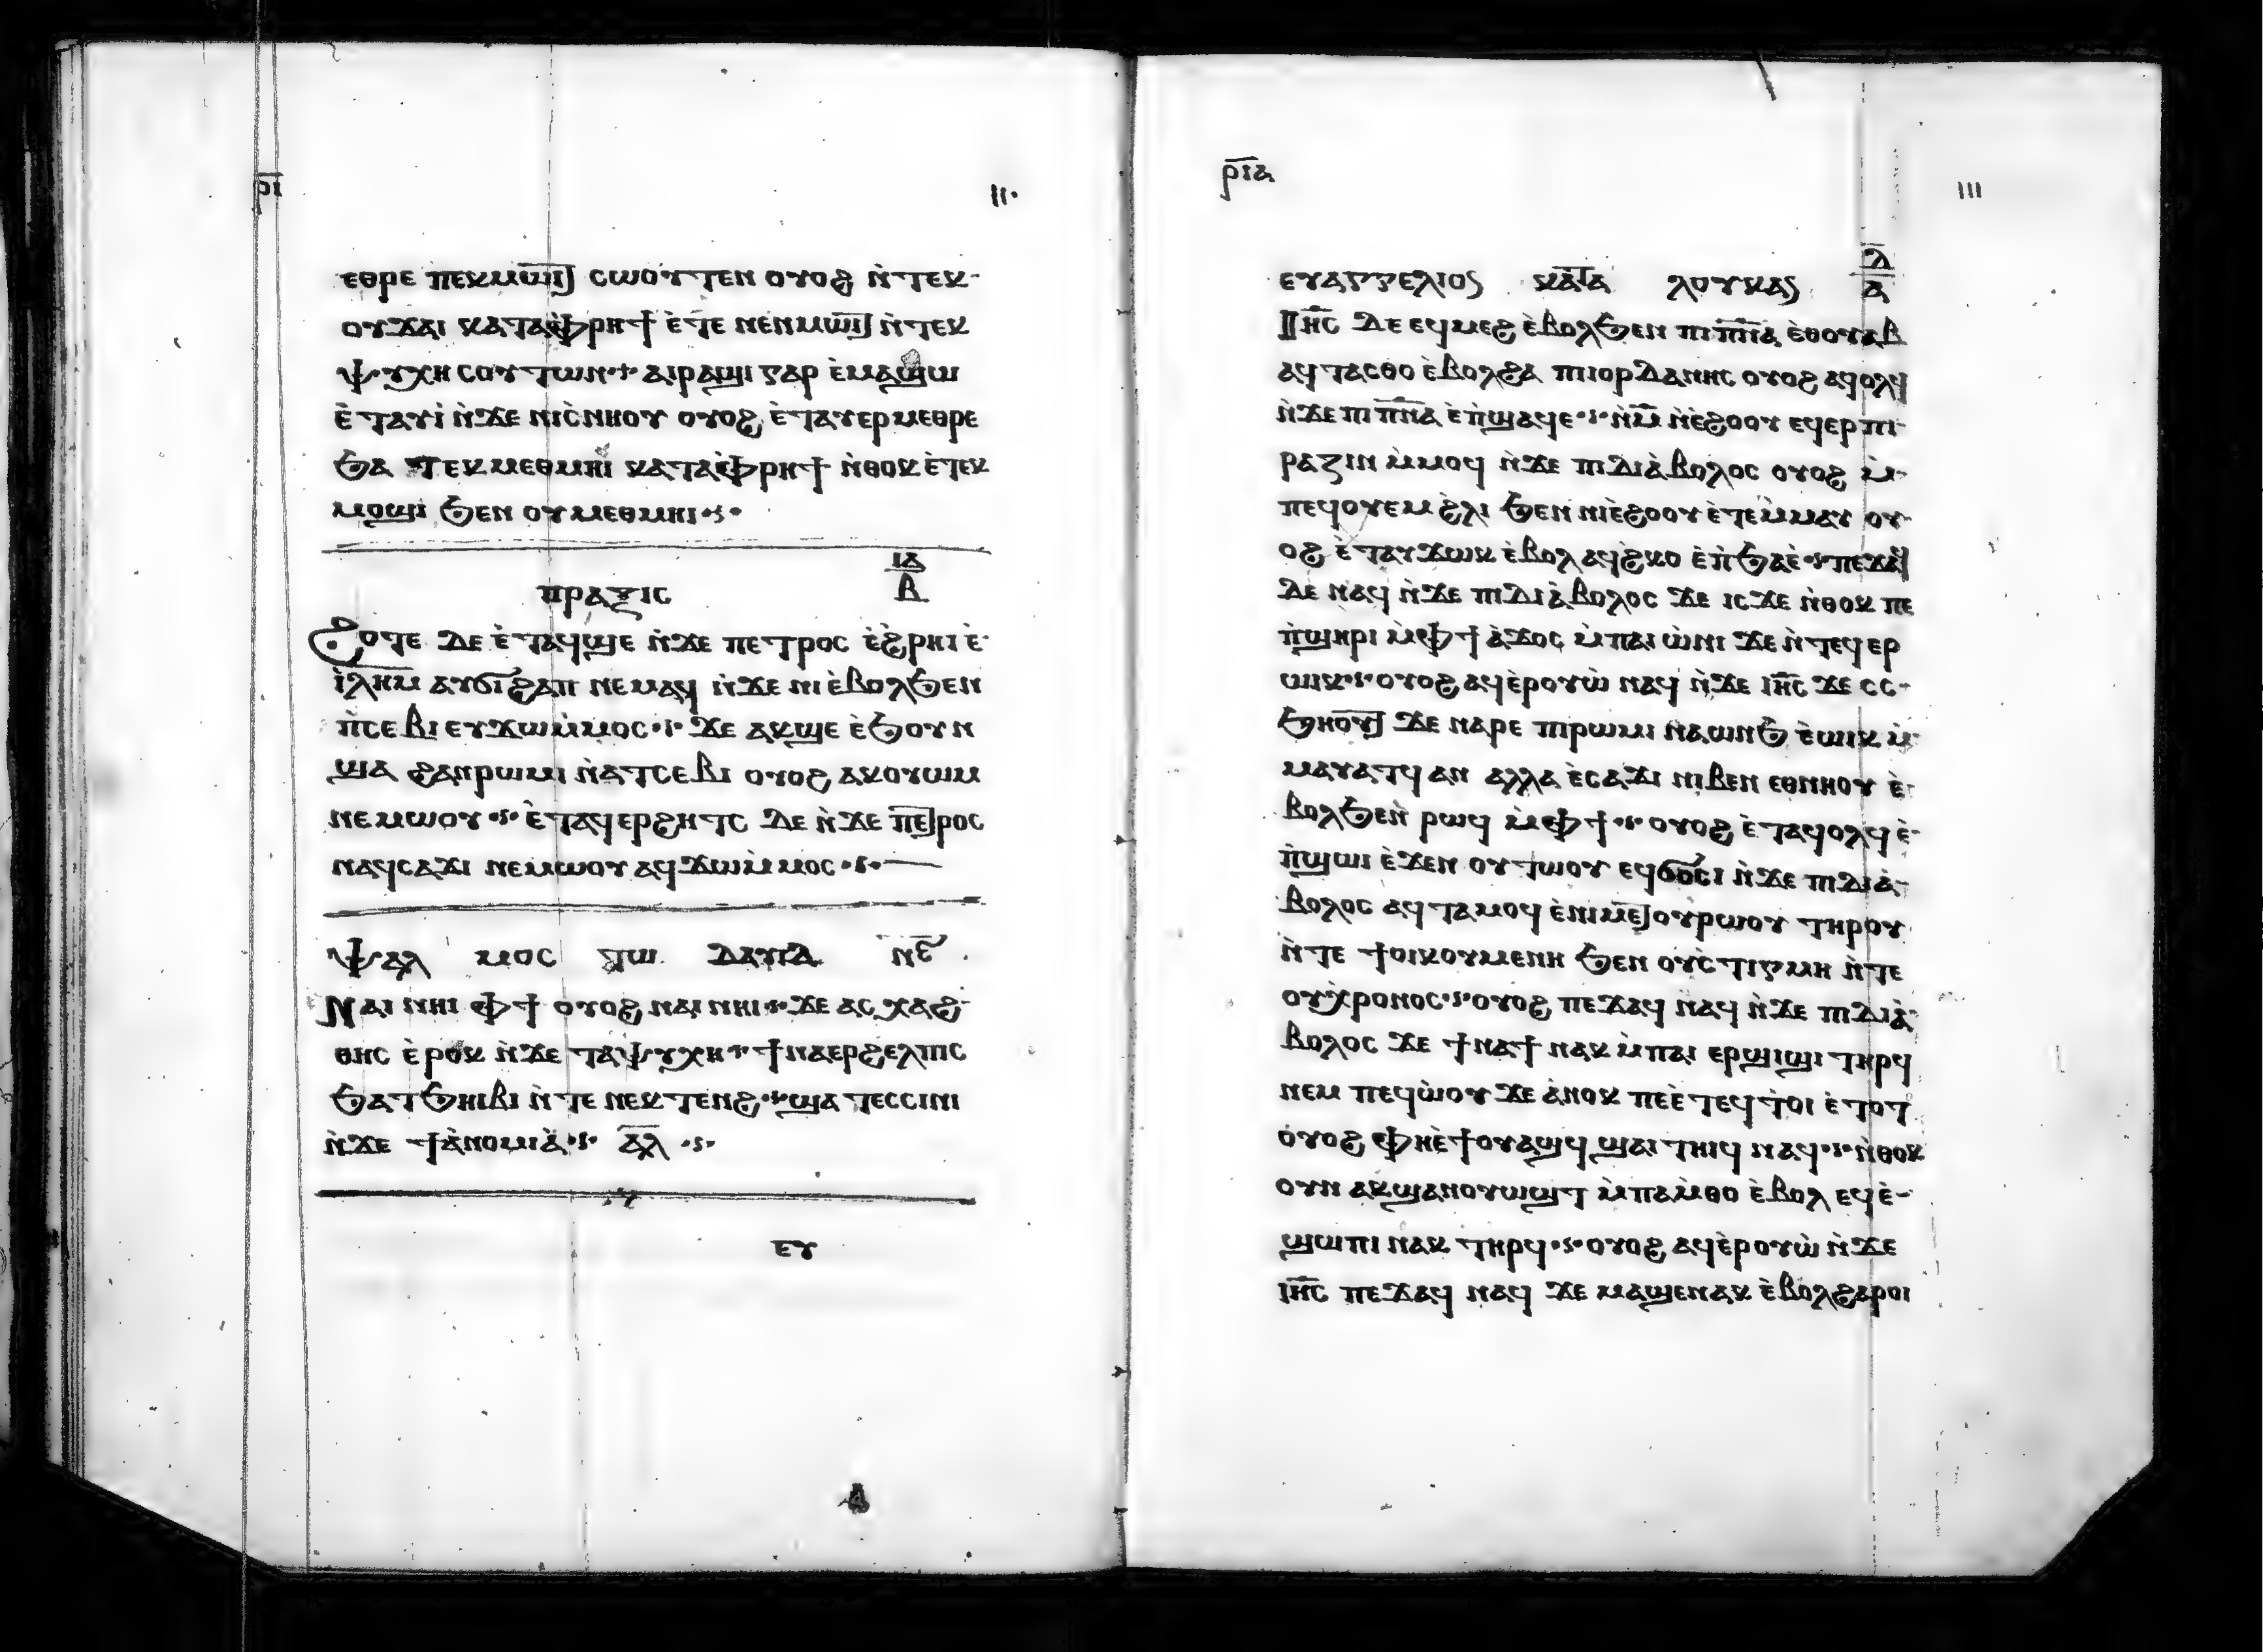 ⲣ̅ⲓ̅
11·
ⲉⲑⲣⲉ ⲡⲉⲕⲙⲱⲓⲧ ⲥⲱⲟⲩⲧⲉⲛ ⲟⲩⲟϩ ⲛ̀ⲧⲉⲕ-
ⲟⲩϫⲁⲓ ⲕⲁⲧⲁⲫ̀ⲣⲏϯ ⲉ̀ⲧⲉ ⲛⲉⲛⲙⲱⲓⲧ ⲛ̀ⲧⲉⲕ
ⲯⲩⲭⲏ ⲥⲟⲩⲧⲱⲛ·ⲋ· ⲁⲓⲣⲁϣⲓ ⲅⲁⲣ ⲉ̀ⲙⲁϣⲱ
ⲉ̀ⲧⲁⲩⲓ̀ ⲛ̀ϫⲉ ⲛⲓⲥ̀ⲛⲏⲟⲩ ⲟⲩⲟϩ ⲉ̀ⲧⲁⲩⲉⲣⲙⲉⲑⲣⲉ
ϧⲁ ⲧⲉⲕⲙⲉⲑⲙⲏⲓ ⲕⲁⲧⲁⲫ̀ⲣⲏϯ ⲛ̀ⲑⲟⲕ ⲉ̀ⲧⲉⲕ
ⲙⲟϣⲓ ϧⲉⲛ ⲟⲩⲙⲉⲑⲙⲏⲓ·ⲋ·
ⲓⲁ
ⲡⲣⲁⲝⲓⲥ ⲃ
ϩⲟⲧⲉ ⲇⲉ ⲉ̀ⲧⲁϥϣⲉ ⲛ̀ϫⲉ ⲡⲉⲧⲣⲟⲥ ⲉ̀ϩⲣⲏⲓ ⲉ̀-
ⲓ̅ⲗ̅ⲏ̅ⲙ̅ ⲁⲩϭⲓϩⲁⲡ ⲛⲉⲙⲁϥ ⲛ̀ϫⲉ ⲛⲓⲉ̀ⲃⲟⲗϧⲉⲛ
ⲡ̀ⲥⲉⲃⲓ ⲉⲩϫⲱⲙ̀ⲙⲟⲥ·ⲋ· ϫⲉ ⲁⲕϣⲉ ⲉ̀ϧⲟⲩⲛ
ϣⲁ ϩⲁⲛⲣⲱⲙⲓ ⲛ̀ⲁⲧⲥⲉⲃⲓ ⲟⲩⲟϩ ⲁⲕⲟⲩⲱⲙ
ⲛⲉⲙⲱⲟⲩ·ⲋ· ⲉ̀ⲧⲁϥⲉⲣϩⲏⲧⲥ ⲇⲉ ⲛ̀ϫⲉ ⲡⲉⲧⲣⲟⲥ
ⲛⲁϥⲥⲁϫⲓ ⲛⲉⲙⲱⲟⲩ ⲁϥϫⲱⲙ̀ⲙⲟⲥ·ⲋ·
ⲯⲁⲗ ⲙⲟⲥ ⲧⲱ ⲇⲁⲩⲓⲇ ⲛ̅ⲋ̅
ⲛⲁⲓ ⲛⲏⲓ ⲫϯ ⲟⲩⲟϩ ⲛⲁⲓ ⲛⲏⲓ·ⲋ· ϫⲉ ⲁⲥ ⲭⲁϩ-
ⲑⲏⲥ ⲉ̀ⲣⲟⲕ ⲛ̀ϫⲉ ⲧⲁⲯⲩⲭⲏ·ⲋ· ϯⲛⲁⲉⲣϩⲉⲗⲡⲓⲥ
ϧⲁⲧϧⲏⲓⲃⲓ ⲛ̀ⲧⲉ ⲛⲉⲕⲧⲉⲛϩ·ⲋ· ϣⲁⲧⲉⲥⲥⲓⲛⲓ
ⲛ̀ϫⲉ ϯⲁ̀ⲛⲟⲙⲓⲁ̀·ⲋ· ⲁ̅ⲗ̅ ·ⲋ·
ⲉⲩ
ⲣ̅ⲓ̅ⲁ̅
111
ⲇ
ⲉⲩⲁⲅⲅⲉⲗⲓⲟⲥ ⲕⲁⲧⲁ ⲗⲟⲩⲕⲁⲥ ⲁ
ⲓ̅ⲏ̅ⲥ̅ ⲇⲉ ⲉϥⲙⲉϩ ⲉ̀ⲃⲟⲗϧⲉⲛ ⲡⲓⲡ̅ⲛ̅ⲁ̅ ⲉ̀ⲑⲟⲩⲁⲃ
ⲁϥⲧⲁⲥⲑⲟ ⲉ̀ⲃⲟⲗϩⲁ ⲡⲓⲓⲟⲣⲇⲁⲛⲏⲥ ⲟⲩⲟϩ ⲁϥⲟⲗϥ
ⲛ̀ϫⲉ ⲡⲓⲡ̅ⲛ̅ⲁ̅ ⲉ̀ⲡ̀ϣⲁϥⲉ·ⲋ· ⲛ̀ⲙ̅ ⲛ̀ⲉ̀ϩⲟⲟⲩ ⲉϥⲉⲣⲡⲓ-
ⲣⲁⲍⲓⲛ ⲙ̀ⲙⲟϥ ⲛ̀ϫⲉ ⲡⲓⲇⲓⲁ̀ⲃⲟⲗⲟⲥ ⲟⲩⲟϩ ⲙ̀-
ⲡⲉϥⲟⲩⲉⲙ ϩ̀ⲗⲓ ϧⲉⲛ ⲛⲓⲉ̀ϩⲟⲟⲩ ⲉ̀ⲧⲉⲙ̀ⲙⲁⲩ ⲟⲩ-
ⲟϩ ⲉ̀ⲧⲁⲩϫⲱⲕ ⲉ̀ⲃⲟⲗ ⲁϥϩ̀ⲕⲟ ⲉ̀ⲡ̀ϧⲁⲉ̀·ⲋ· ⲡⲉϫⲁϥ
ⲇⲉ ⲛⲁϥ ⲛ̀ϫⲉ ⲡⲓⲇⲓⲁ̀ⲃⲟⲗⲟⲥ ϫⲉ ⲓⲥϫⲉ ⲛ̀ⲑⲟⲕ ⲡⲉ
ⲡ̀ϣⲏⲣⲓ ⲙ̀ⲫϯ ⲁ̀ϫⲟⲥ ⲙ̀ⲡⲁⲓ ⲱ̀ⲛⲓ ϫⲉ ⲛ̀ⲧⲉϥⲉⲣ
ⲱⲓⲕ·ⲋ· ⲟⲩⲟϩ ⲁϥⲉ̀ⲣⲟⲩⲱ̀ ⲛⲁϥ ⲛ̀ϫⲉ ⲓ̅ⲏ̅ⲥ̅ ϫⲉ ⲥⲥ-
ϧⲏⲟⲩⲧ ϫⲉ ⲛⲁⲣⲉ ⲡⲓⲣⲱⲙⲓ ⲛⲁⲱⲛϧ ⲉ̀ⲱⲓⲕ ⲙ̀-
ⲙⲁⲩⲁⲧϥ ⲁⲛ ⲁⲗⲗⲁ ⲉ̀ⲥⲁϫⲓ ⲛⲓⲃⲉⲛ ⲉⲑⲛⲏⲟⲩ ⲉ̀-
ⲃⲟⲗϧⲉⲛ̀ ⲣⲱϥ ⲙ̀ⲫϯ·ⲋ· ⲟⲩⲟϩ ⲉ̀ⲧⲁϥⲟⲗϥ ⲉ̀-
ⲡ̀ϣⲱⲓ ⲉ̀ϫⲉⲛ ⲟⲩⲧⲱⲟⲩ ⲉϥϭⲟⲥⲓ ⲛ̀ϫⲉ ⲡⲓⲇⲓⲁ̀-
ⲃⲟⲗⲟⲥ ⲁϥⲧⲁⲙⲟϥ ⲉ̀ⲛⲓⲙⲉⲧⲟⲩⲣⲱⲟⲩ ⲧⲏⲣⲟⲩ
ⲛ̀ⲧⲉ ϯⲟⲓⲕⲟⲩⲙⲉⲛⲏ ϧⲉⲛ ⲟⲩⲥ̀ⲧⲓⲅⲙⲏ ⲛ̀ⲧⲉ
ⲟⲩⲭ̀ⲣⲟⲛⲟⲥ·ⲋ· ⲟⲩⲟϩ ⲡⲉϫⲁϥ ⲛⲁϥ ⲛ̀ϫⲉ ⲡⲓⲇⲓⲁ̀-
ⲃⲟⲗⲟⲥ ϫⲉ ϯⲛⲁϯ ⲛⲁⲕ ⲙ̀ⲡⲁⲓ ⲉⲣϣⲓϣⲓ ⲧⲏⲣϥ
ⲛⲉⲙ ⲡⲉϥⲱ̀ⲟⲩ ϫⲉ ⲁ̀ⲛⲟⲕ ⲡⲉⲉ̀ⲧⲉϥⲧⲟⲓ ⲉ̀ⲧⲟⲧ
ⲟⲩⲟϩ ⲫⲏⲉ̀ϯⲟⲩⲁϣϥ ϣⲁⲓⲧⲏⲓϥ ⲛⲁϥ·ⲋ· ⲛ̀ⲑⲟⲕ
ⲟⲩⲛ ⲁⲕϣⲁⲛⲟⲩⲱϣⲧ ⲙ̀ⲡⲁⲙ̀ⲑⲟ ⲉ̀ⲃⲟⲗ ⲉϥⲉ̀-
ϣⲱⲡⲓ ⲛⲁⲕ ⲧⲏⲣϥ·ⲋ· ⲟⲩⲟϩ ⲁϥⲉ̀ⲣⲟⲩⲱ̀ ⲛ̀ϫⲉ
ⲓ̅ⲏ̅ⲥ̅ ⲡⲉϫⲁϥ ⲛⲁϥ ϫⲉ ⲙⲁϣⲉⲛⲁⲕ ⲉ̀ⲃⲟⲗϩⲁⲣⲟⲓ